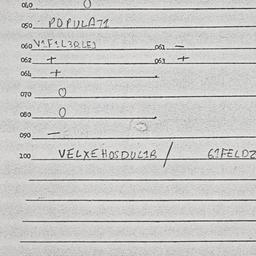 040 0
050 POPULA71
060 V1F1L3QLEJ 061 —
062 + 063 +
064 +
070 0
080 0
090 —
100 VELXEHOSDUL1B / 61FELDZ